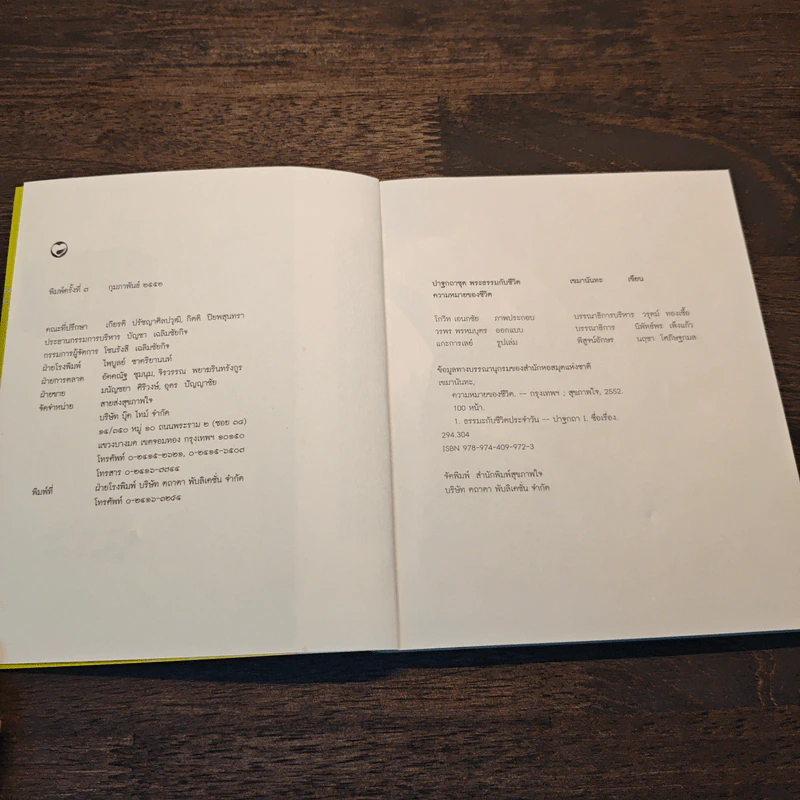 พิมพ์ครั้งที่ ๓ กุมภาพันธ์ ๒๕๕๒
คณะที่ปรึกษา เกียรติ ปรัชญาศิลปวุฒิ, กิตติ ปิยพสุนทรา
ประธานกรรมการบริหาร บัญชา เฉลิมชัยกิจ
กรรมการผู้จัดการ โชนรังสี เฉลิมชัยกิจ
ฝ่ายโรงพิมพ์ ไพบูลย์ ชาคริยานนท์
ฝ่ายการตลาด อัคคณัฐ ชุมนุม, จิรวรรณ พยาฆรินทรังกูร
ฝ่ายขาย มนัญชยา ศิริวงษ์, อุดร ปัญญาชัย
จัดจำหน่าย สายส่งสุขภาพใจ
บริษัท บุ๊ค ไทม์ จำกัด
๑๔/๓๕๐ หมู่ ๑๐ ถนนพระราม ๒ (ซอย ๓๘)
แขวงบางมด เขตจอมทอง กรุงเทพฯ ๑๐๑๕๐
โทรศัพท์ ๐-๒๔๑๕-๒๖๒๑, ๐-๒๔๑๕-๖๕๐๗
โทรสาร ๐-๒๔๑๖-๗๗๔๔
พิมพ์ที่ ฝ่ายโรงพิมพ์ บริษัท ตถาตา พับลิเคชั่น จำกัด
โทรศัพท์ ๐-๒๔๑๖-๓๒๘๔
ปาฐกถาชุด พระธรรมกับชีวิต เขมานันทะ เขียน
ความหมายของชีวิต
โกวิท เอนกชัย ภาพประกอบ บรรณาธิการบริหาร วรุตม์ ทองเชื้อ
วรพร พรหมบุตร ออกแบบ บรรณาธิการ นิพัทธ์พร เพ็งแก้ว
แกะการเลย์ รูปเล่ม พิสูจน์อักษร นฤชา โคอิษฐกมล
ข้อมูลทางบรรณานุกรมของสำนักหอสมุดแห่งชาติ
เขมานันทะ,
ความหมายของชีวิต. -- กรุงเทพฯ ; สุขภาพใจ, 2552.
100 หน้า.
1. ธรรมะกับชีวิตประจำวัน -- ปาฐกถา I. ชื่อเรื่อง.
294.304
ISBN 978-974-409-972-3
จัดพิมพ์ สำนักพิมพ์สุขภาพใจ
บริษัท ตถาตา พับลิเคชั่น จำกัด